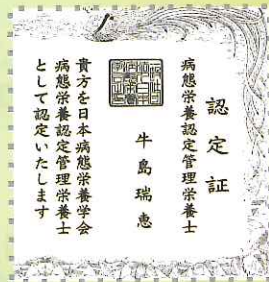 認定証
病態栄養認定管理栄養士
牛島瑞恵
貴方を日本病態栄養学会
病態栄養認定管理栄養士
として認定いたします